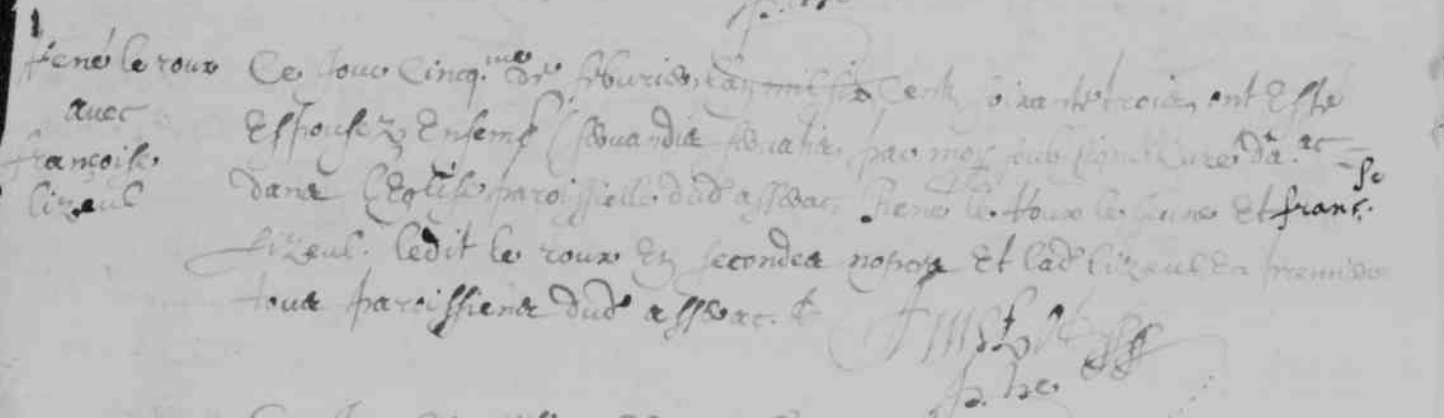 René le roux
avec
françoise
lizeul
Ce Jour Cinq.me de febvrier, L'an mil six Cents soixante trois, ont Esté
Espousez Ensemble servandis servatis, par moy
dans L'Eglise paroissielle dud assérac, René le Roux le jeune Et franç.se
Lizeul. ledit le roux En secondes nopces Et lad lizeul En premieres
tous paroissiens dud assérac. &